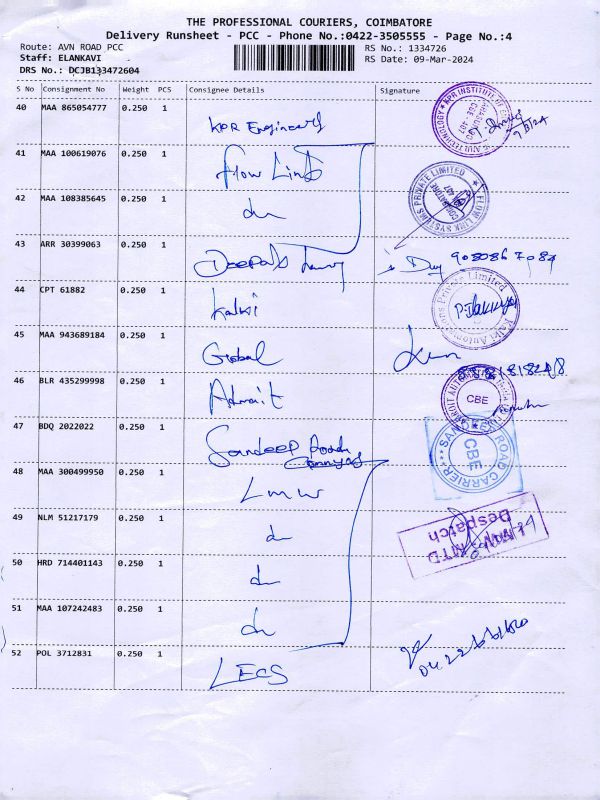 THE PROFESSIONAL COURIERS, COIMBATORE
Delivery Runsheet - PCC - Phone No.:0422-3505555 - Page No.:4
Route: AVN ROAD PCC
RS No.: 1334726
Staff: ELANKAVI
RS Date: 09-Mar-2024
DRS No.: DCJB133472604
S No Consignment No Weight PCS Consignee Details Signature
40 MAA 865054777 0.250 1
KPR Engineering
41 MAA 100619076 0.250 1
Flow Link
42 MAA 108385645 0.250 1
do
FLOW LINK SYSTEMS PRIVATE LIMITED
43 ARR 30399063 0.250 1
Deepak
44 CPT 61882 0.250 1
Kalki
45 MAA 943689184 0.250 1
Global
46 BLR 435299998 0.250 1
Adroit
CBE
47 BDQ 2022022 0.250 1
Sandeep Road
SANDEEP ROAD CARRIER
CBE
48 MAA 300499950 0.250 1
LMW
49 NLM 51217179 0.250 1
do
Despatch
50 HRD 714401143 0.250 1
do
51 MAA 107242483 0.250 1
do
52 POL 3712831 0.250 1
LECS